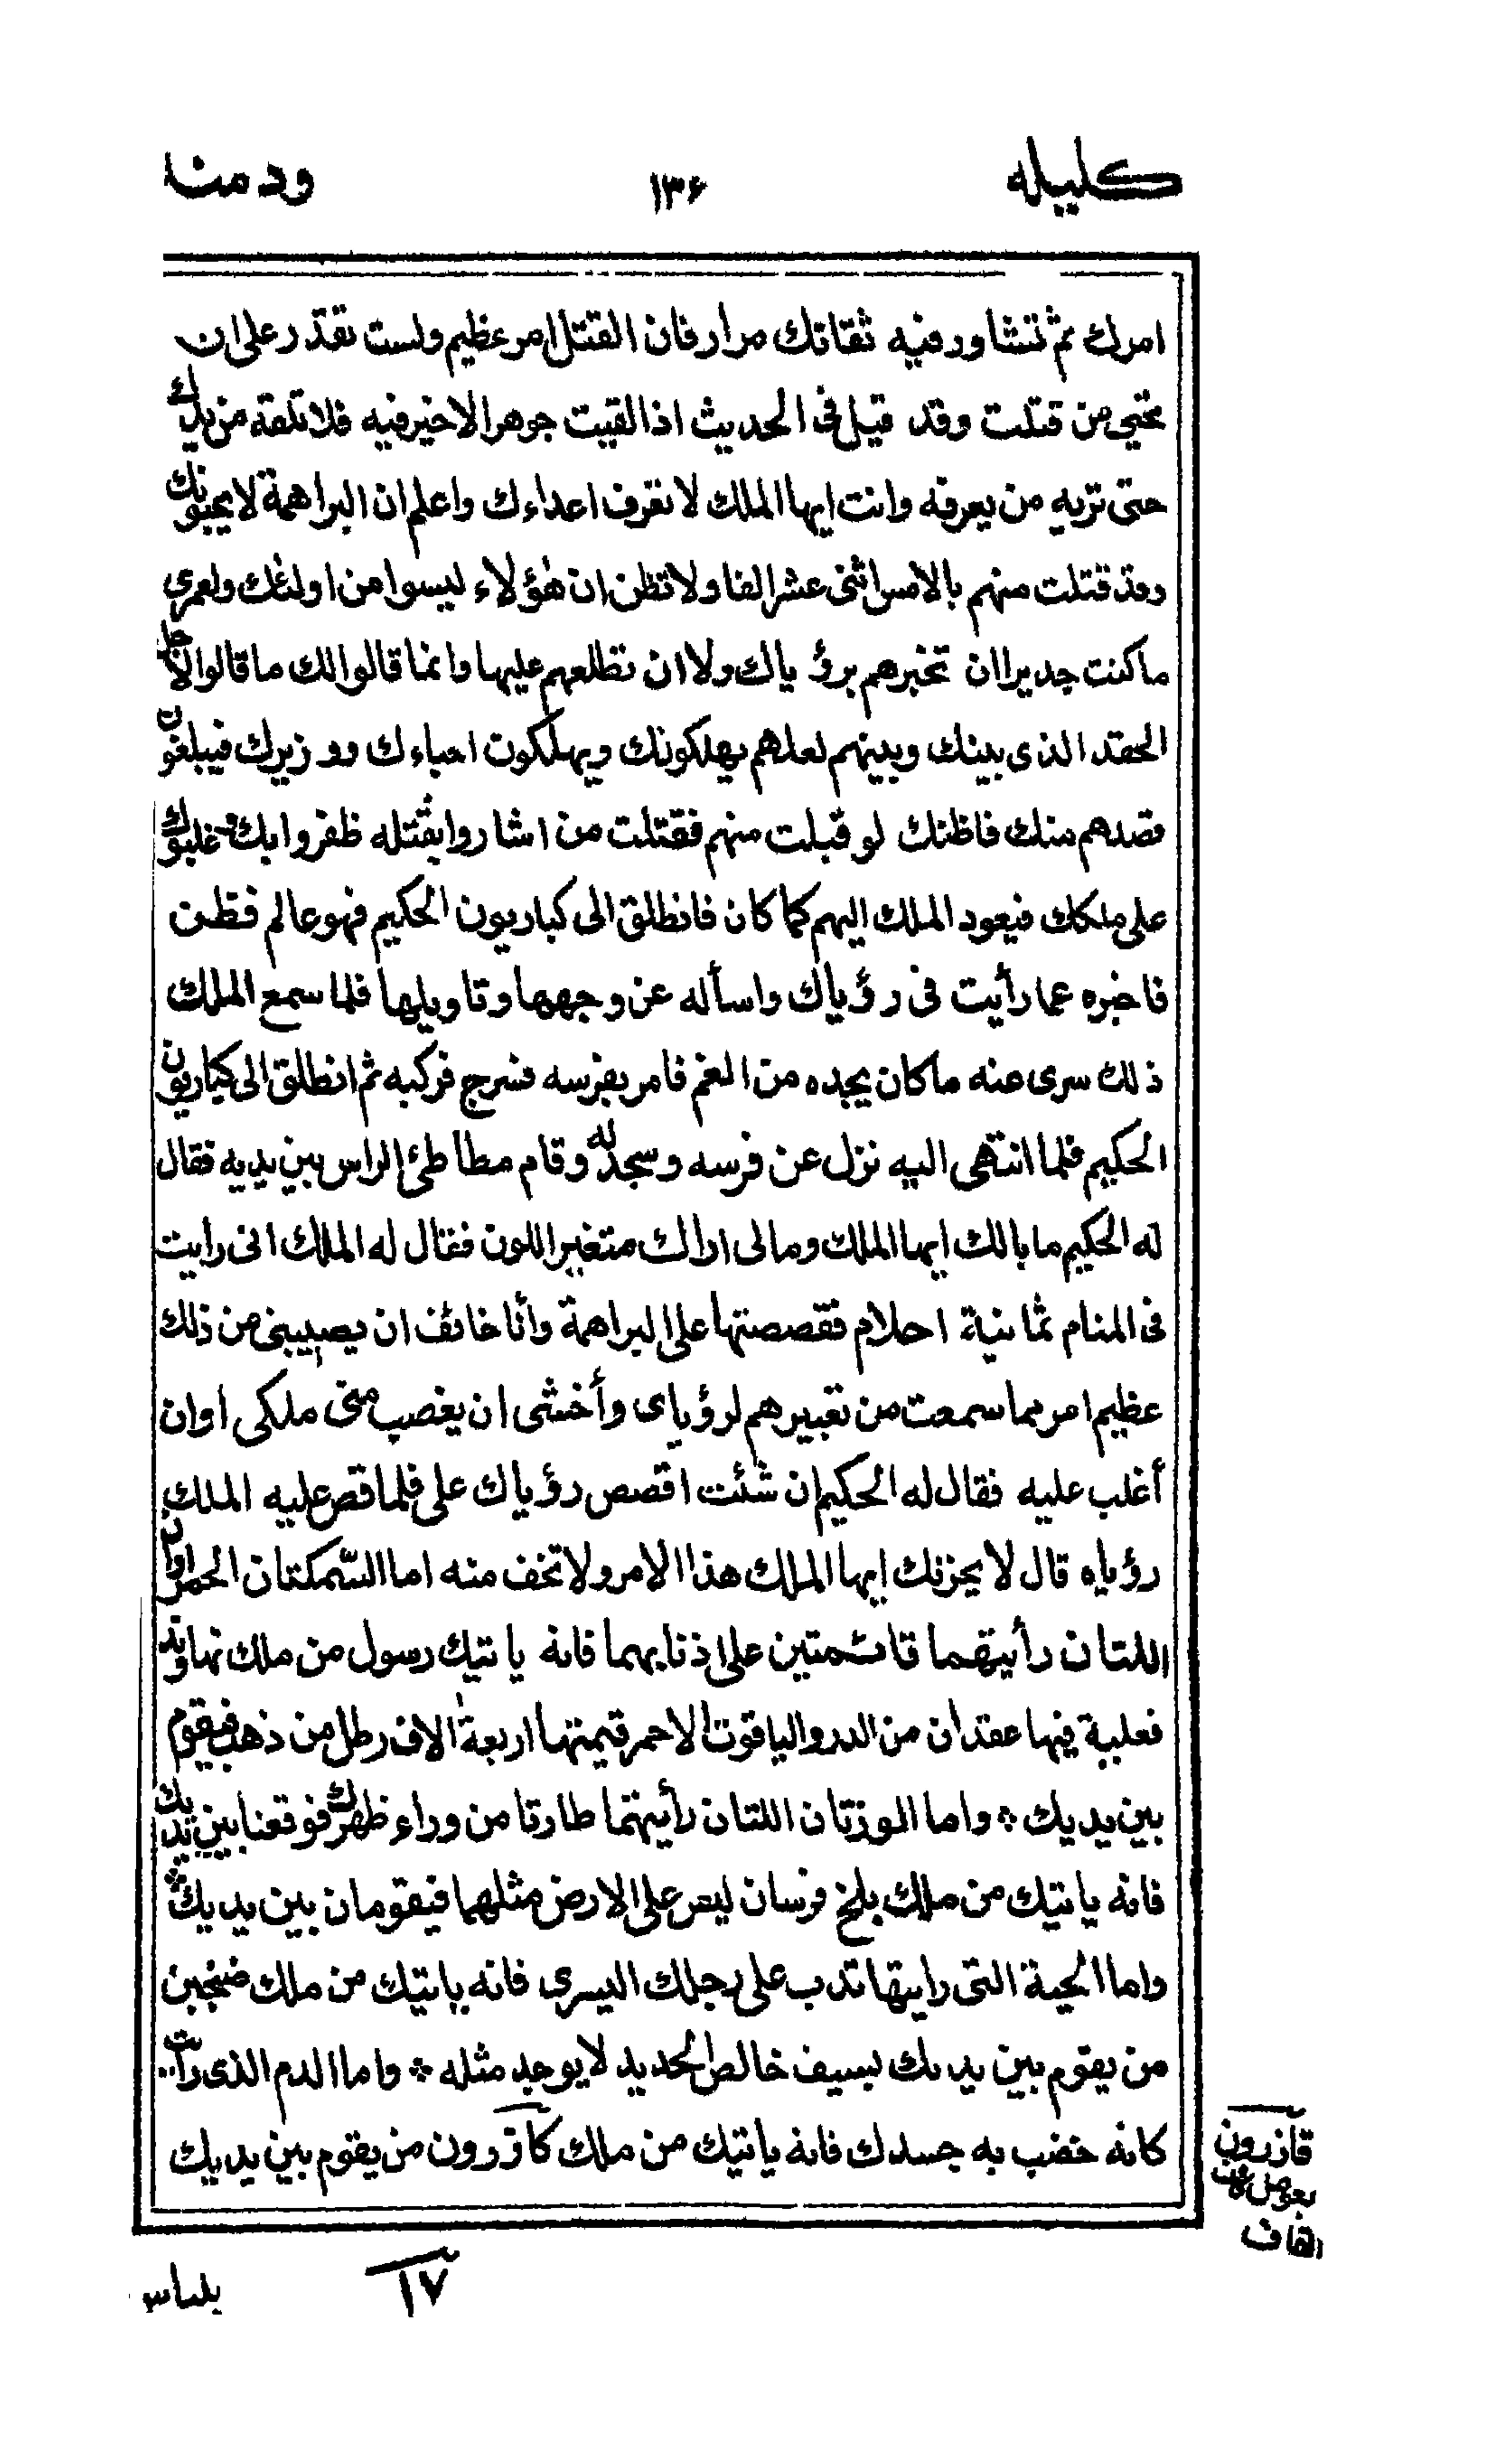 كليله ١٣۶ ودمنا
امرك ثم تشاور فيه ثقاتك مرار فان القتل امر عظيم ولست تقدر على ان
تحيى من قتلت وقد قيل فى الحديث اذا لقيت جوهرا لا خير فيه فلا تلقه من يدك
حتى تريه من يعرفه وانت ايها الملك لا تعرف اعداءك واعلم ان البراهمة لا يحبونك
وقد قتلت منهم بالامس اثنى عشر الفا ولا تظن ان هؤلاء ليسوا من اولئك ولعمرى
ما كنت جديرا ان تخبرهم برؤياك ولا ان تطلعهم عليها وانما قالوا لك ما قالوا لاجل
الحقد الذى بينك وبينهم لعلهم يهلكونك ويهلكون احباءك ووزيرك فيبلغون
قصدهم منك فاظنك لو قبلت منهم فقتلت من اشاروا بقتله ظفروا بك وغلبوك
على ملكك فيعود الملك اليهم كما كان فانطلق الى كباريون الحكيم فهو عالم فطن
فاخبره عما رأيت فى رؤياك واسأله عن وجهها وتاويلها فلما سمع الملك
ذلك سرى عنه ما كان يجده من الغم فامر بفرسه فسرج فركبه ثم انطلق الى كباريون
الحكيم فلما انتهى اليه نزل عن فرسه وسجد له وقام مطاطئ الراس بين يديه فقال
له الحكيم ما بالك ايها الملك ومالى اراك متغير اللون فقال له الملك انى رايت
فى المنام ثمانية احلام فقصصتها على البراهمة وأنا خائف ان يصيبنى من ذلك
عظيم امر مما سمعت من تعبيرهم لرؤياى وأخشى ان يغصب منى ملكى اوان
أغلب عليه فقال له الحكيم ان شئت اقصص رؤياك على فلما قص عليه الملك
رؤياه قال لا يحزنك ايها الملك هذا الامر ولا تخف منه اما السّمكتان الحمراوان
اللتان رأيتهما قائمتين على اذنابهما فانه ياتيك رسول من ملك نهاوند
فعلبة فيها عقدان من الدر والياقوت الاحمر قيمتها اربعة الاف رطل من ذهب فيقوم
بين يديك * واما الوزتان اللتان رأيتهما طارتا من وراء ظهرك فوقعتا بين يديك
فانه ياتيك من ملك بلخ فرسان ليس على الارض مثلهما فيقومان بين يديك *
واما الحية التى رايتها تدب على رجلك اليسرى فانه ياتيك من ملك صنجين
من يقوم بين يديك بسيف خالص الحديد لا يوجد مثله * واما الدم الذى رأيت
كانه خضب به جسدك فانه ياتيك من ملك كازرون من يقوم بين يديك
قازرون
القاف
١٧
بلباس